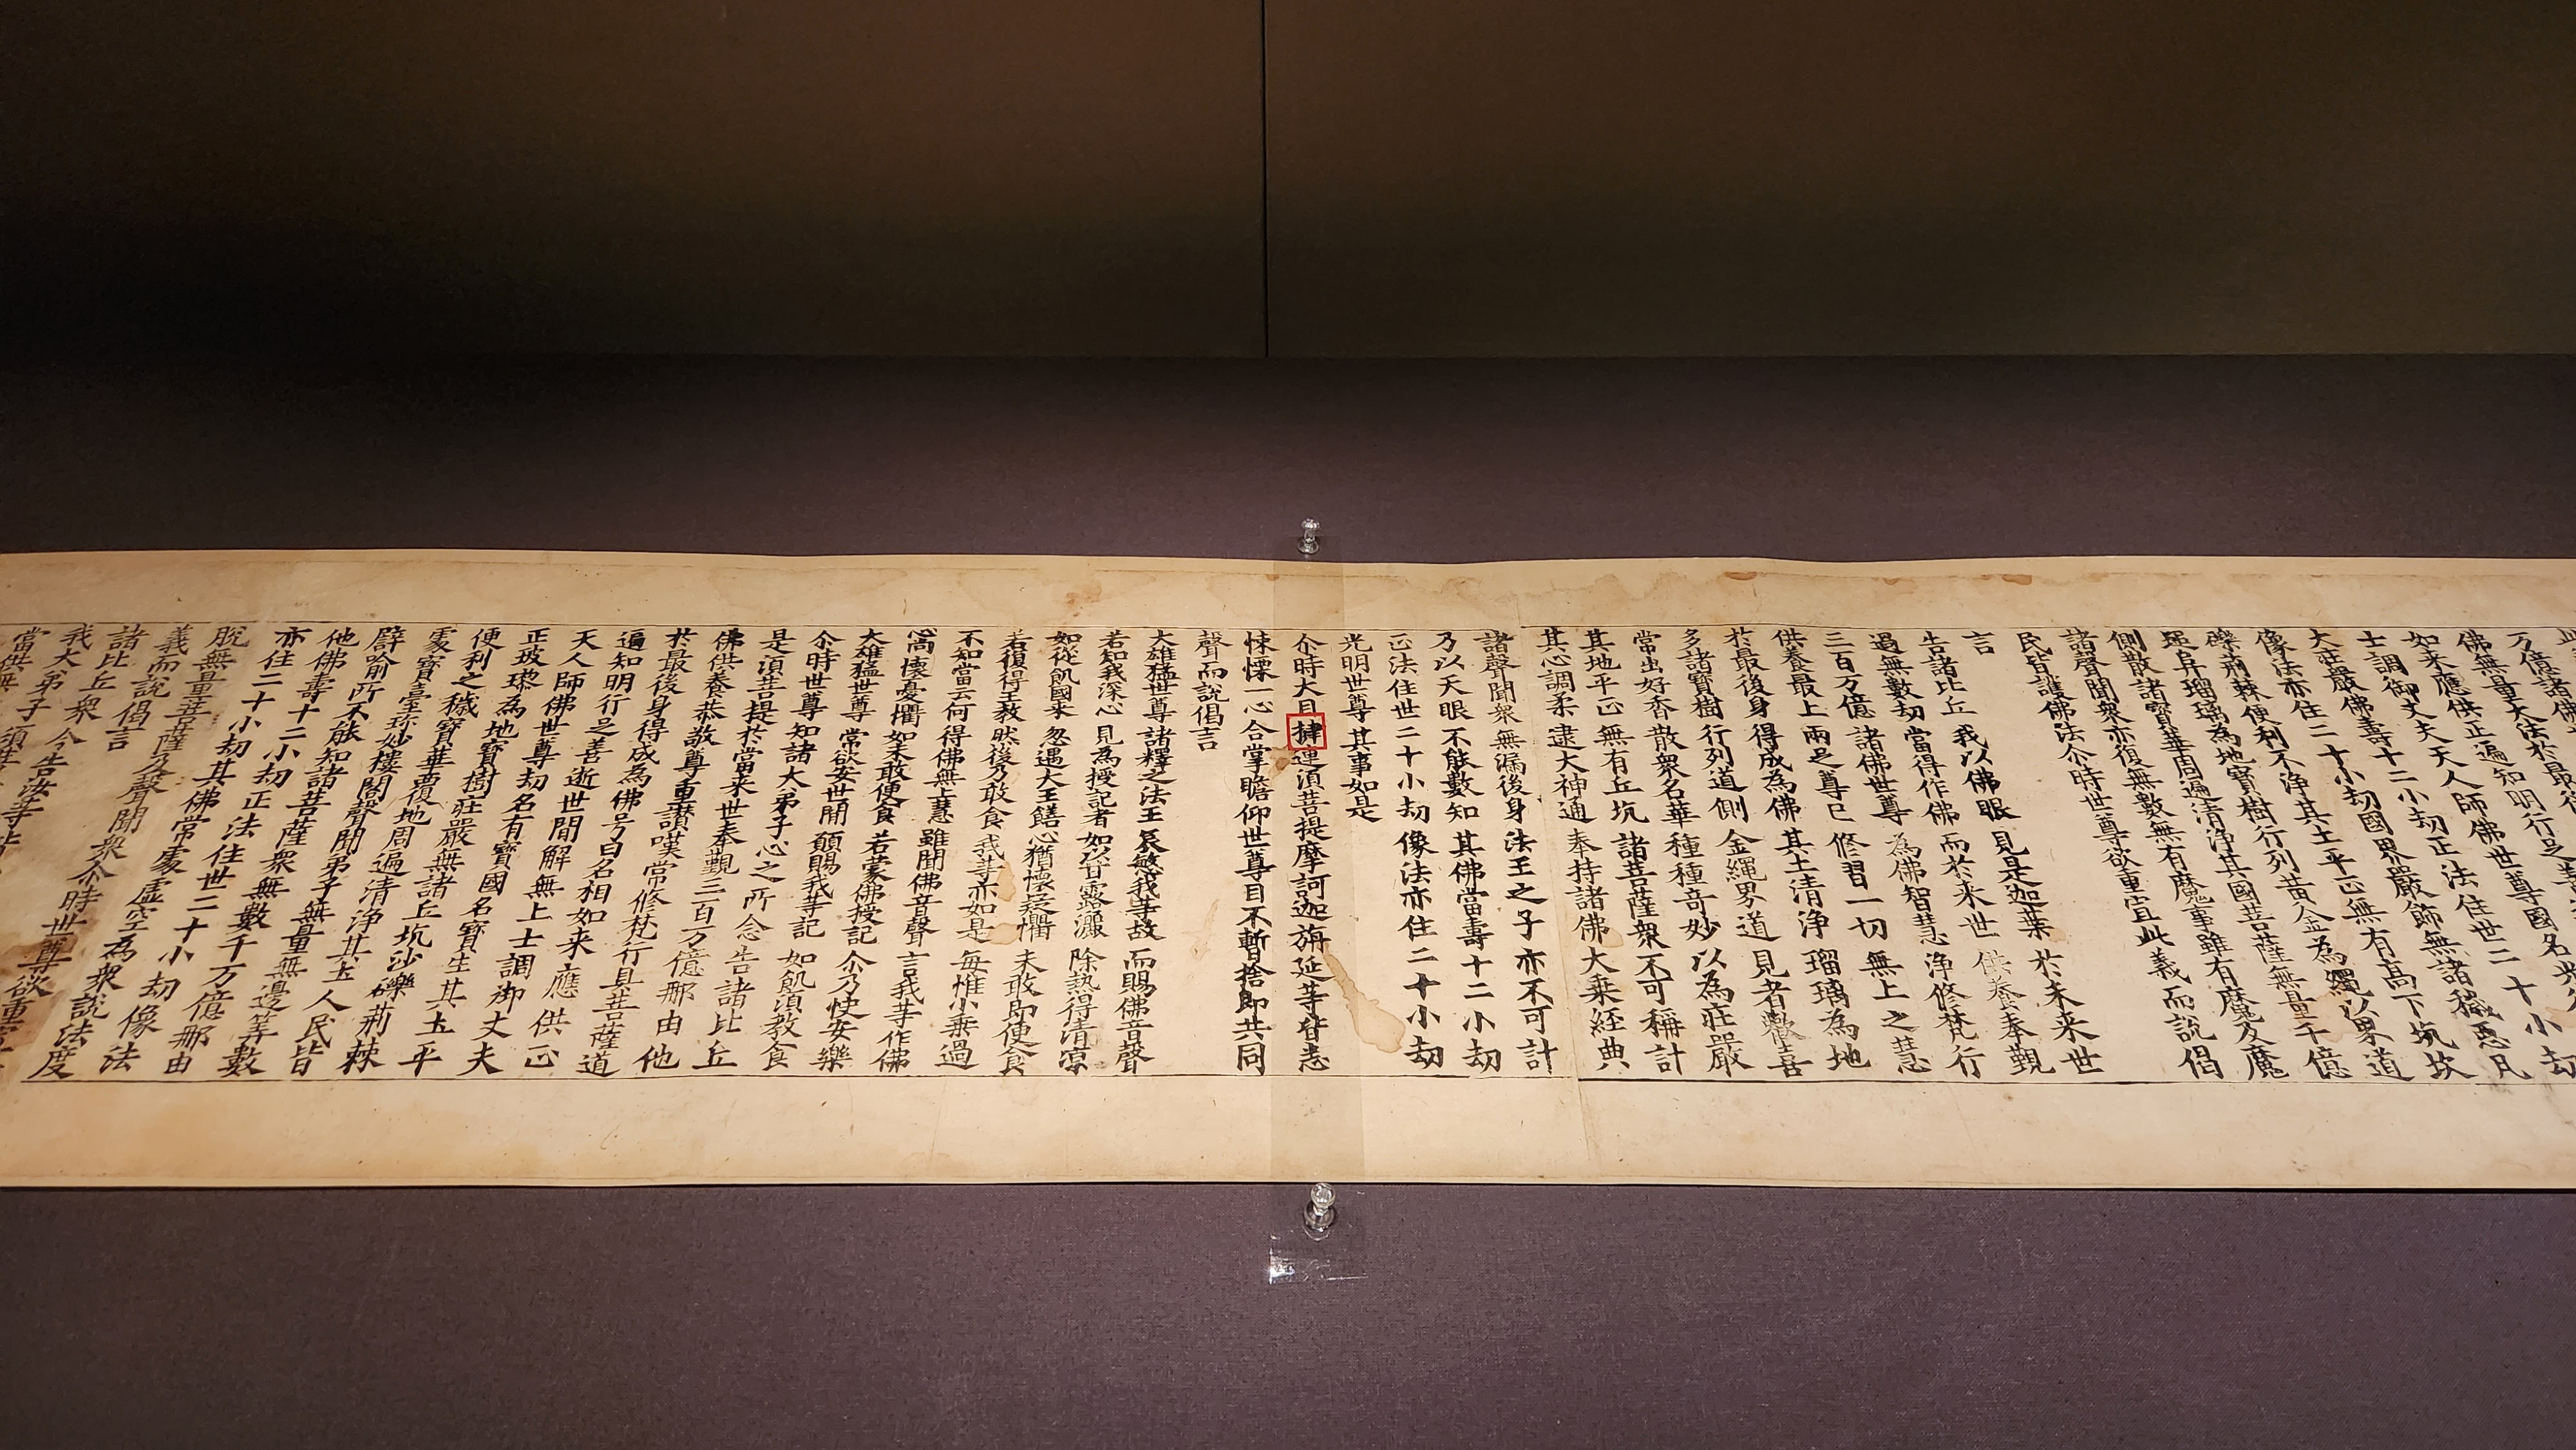 万億諸佛
佛無量大法於最後
如来應供正遍知明行足善
士調御丈夫天人師佛世尊國名光
大莊嚴佛壽十二小劫正法住世二十小劫
像法亦住二十小劫國界嚴飾無諸穢惡凡
礫荊棘便利不淨其土平正無有高下坑坎
塠阜瑠璃為地寶樹行列黃金為繩以界道
側散諸寶華周遍清淨其國菩薩無量千億
諸聲聞衆亦復無數無有魔事雖有魔及魔
民皆護佛法尒時世尊欲重宣此義而說偈
言
告諸比丘 我以佛眼 見是迦葉 於未来世
過無數劫 當得作佛 而於来世 供養奉覲
三百万億 諸佛世尊 為佛智慧 淨修梵行
供養最上 兩足尊已 修習一切 無上之慧
於最後身 得成為佛 其土清淨 瑠璃為地
多諸寶樹 行列道側 金繩界道 見者歡喜
常出好香 散衆名華 種種奇妙 以為莊嚴
其地平正 無有丘坑 諸菩薩衆 不可稱計
其心調柔 逮大神通 奉持諸佛 大乘経典
諸聲聞衆 無漏後身 法王之子 亦不可計
乃以天眼 不能數知 其佛當壽 十二小劫
正法住世 二十小劫 像法亦住 二十小劫
光明世尊 其事如是
尒時大目揵連湏菩提摩訶迦旃延等皆悉
悚慄一心合掌瞻仰世尊目不暫捨即共同
聲而說偈言
大雄猛世尊 諸釋之法王 哀愍我等故 而賜佛音聲
若知我深心 見為授記者 如以甘露灑 除熱得清涼
如從飢國来 忽遇大王饍 心猶懷疑懼 未敢即便食
若復得王教 然後乃敢食 我等亦如是 每惟小乘過
不知當云何 得佛無上慧 雖聞佛音聲 言我等作佛
心尚懷憂懼 如未敢便食 若蒙佛授記 尒乃快安樂
大雄猛世尊 常欲安世間 願賜我等記 如飢湏教食
尒時世尊知諸大弟子心之所念告諸比丘
是湏菩提於當来世奉覲三百万億那由他
佛供養恭敬尊重讚嘆常修梵行具菩薩道
於最後身得成為佛号曰名相如来應供正
遍知明行足善逝世間解無上士調御丈夫
天人師佛世尊劫名有寶國名寶生其土平
正玻瓈為地寶樹莊嚴無諸丘坑沙礫荊棘
便利之穢寶華覆地周遍清淨其土人民皆
處寶臺珎妙樓閣聲聞弟子無量無邊筭數
譬喻所不能知諸菩薩衆無數千万億那由
他佛壽十二小劫正法住世二十小劫像法
亦住二十小劫其佛常處虛空為衆說法度
脫無量菩薩及聲聞衆尒時世尊欲重宣
義而說偈言
諸比丘衆 今告汝等
我大弟子 須菩
當供無